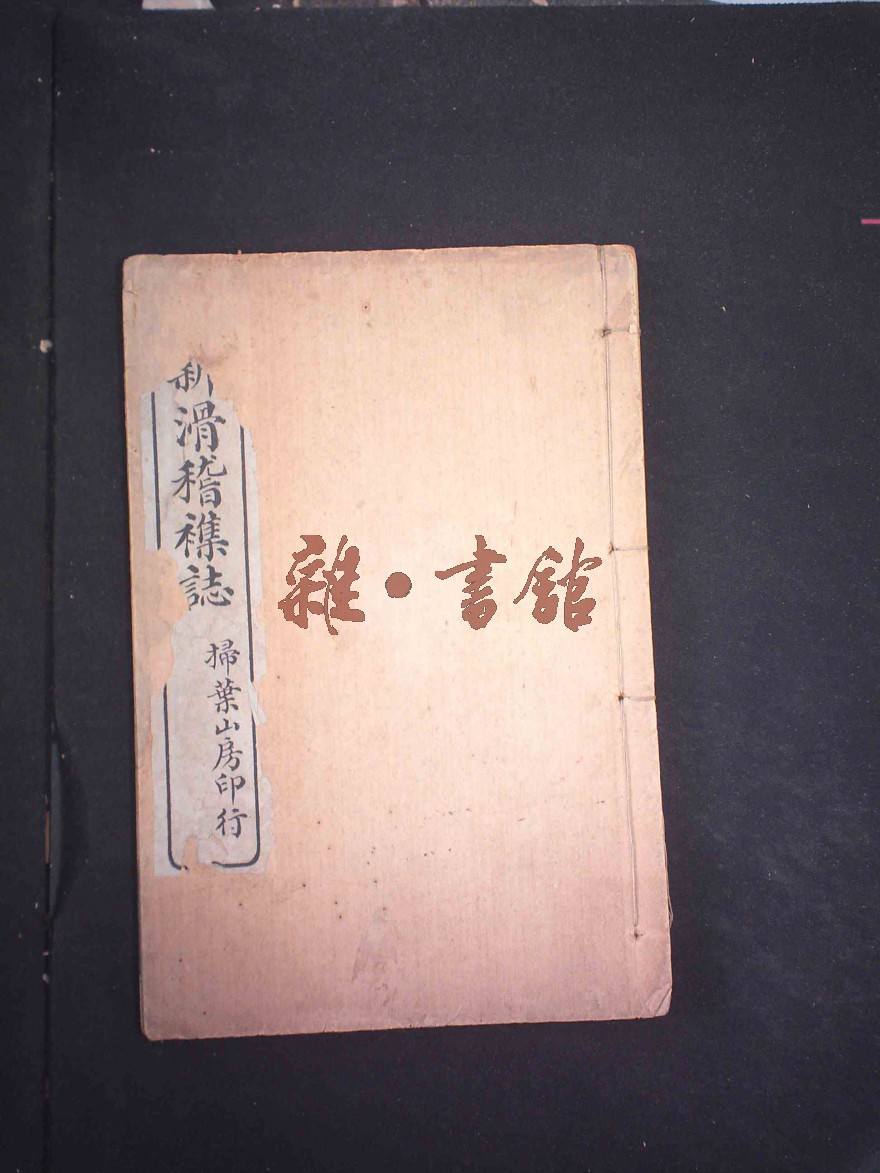 新滑稽襍誌
掃葉山房印行
雜·書館